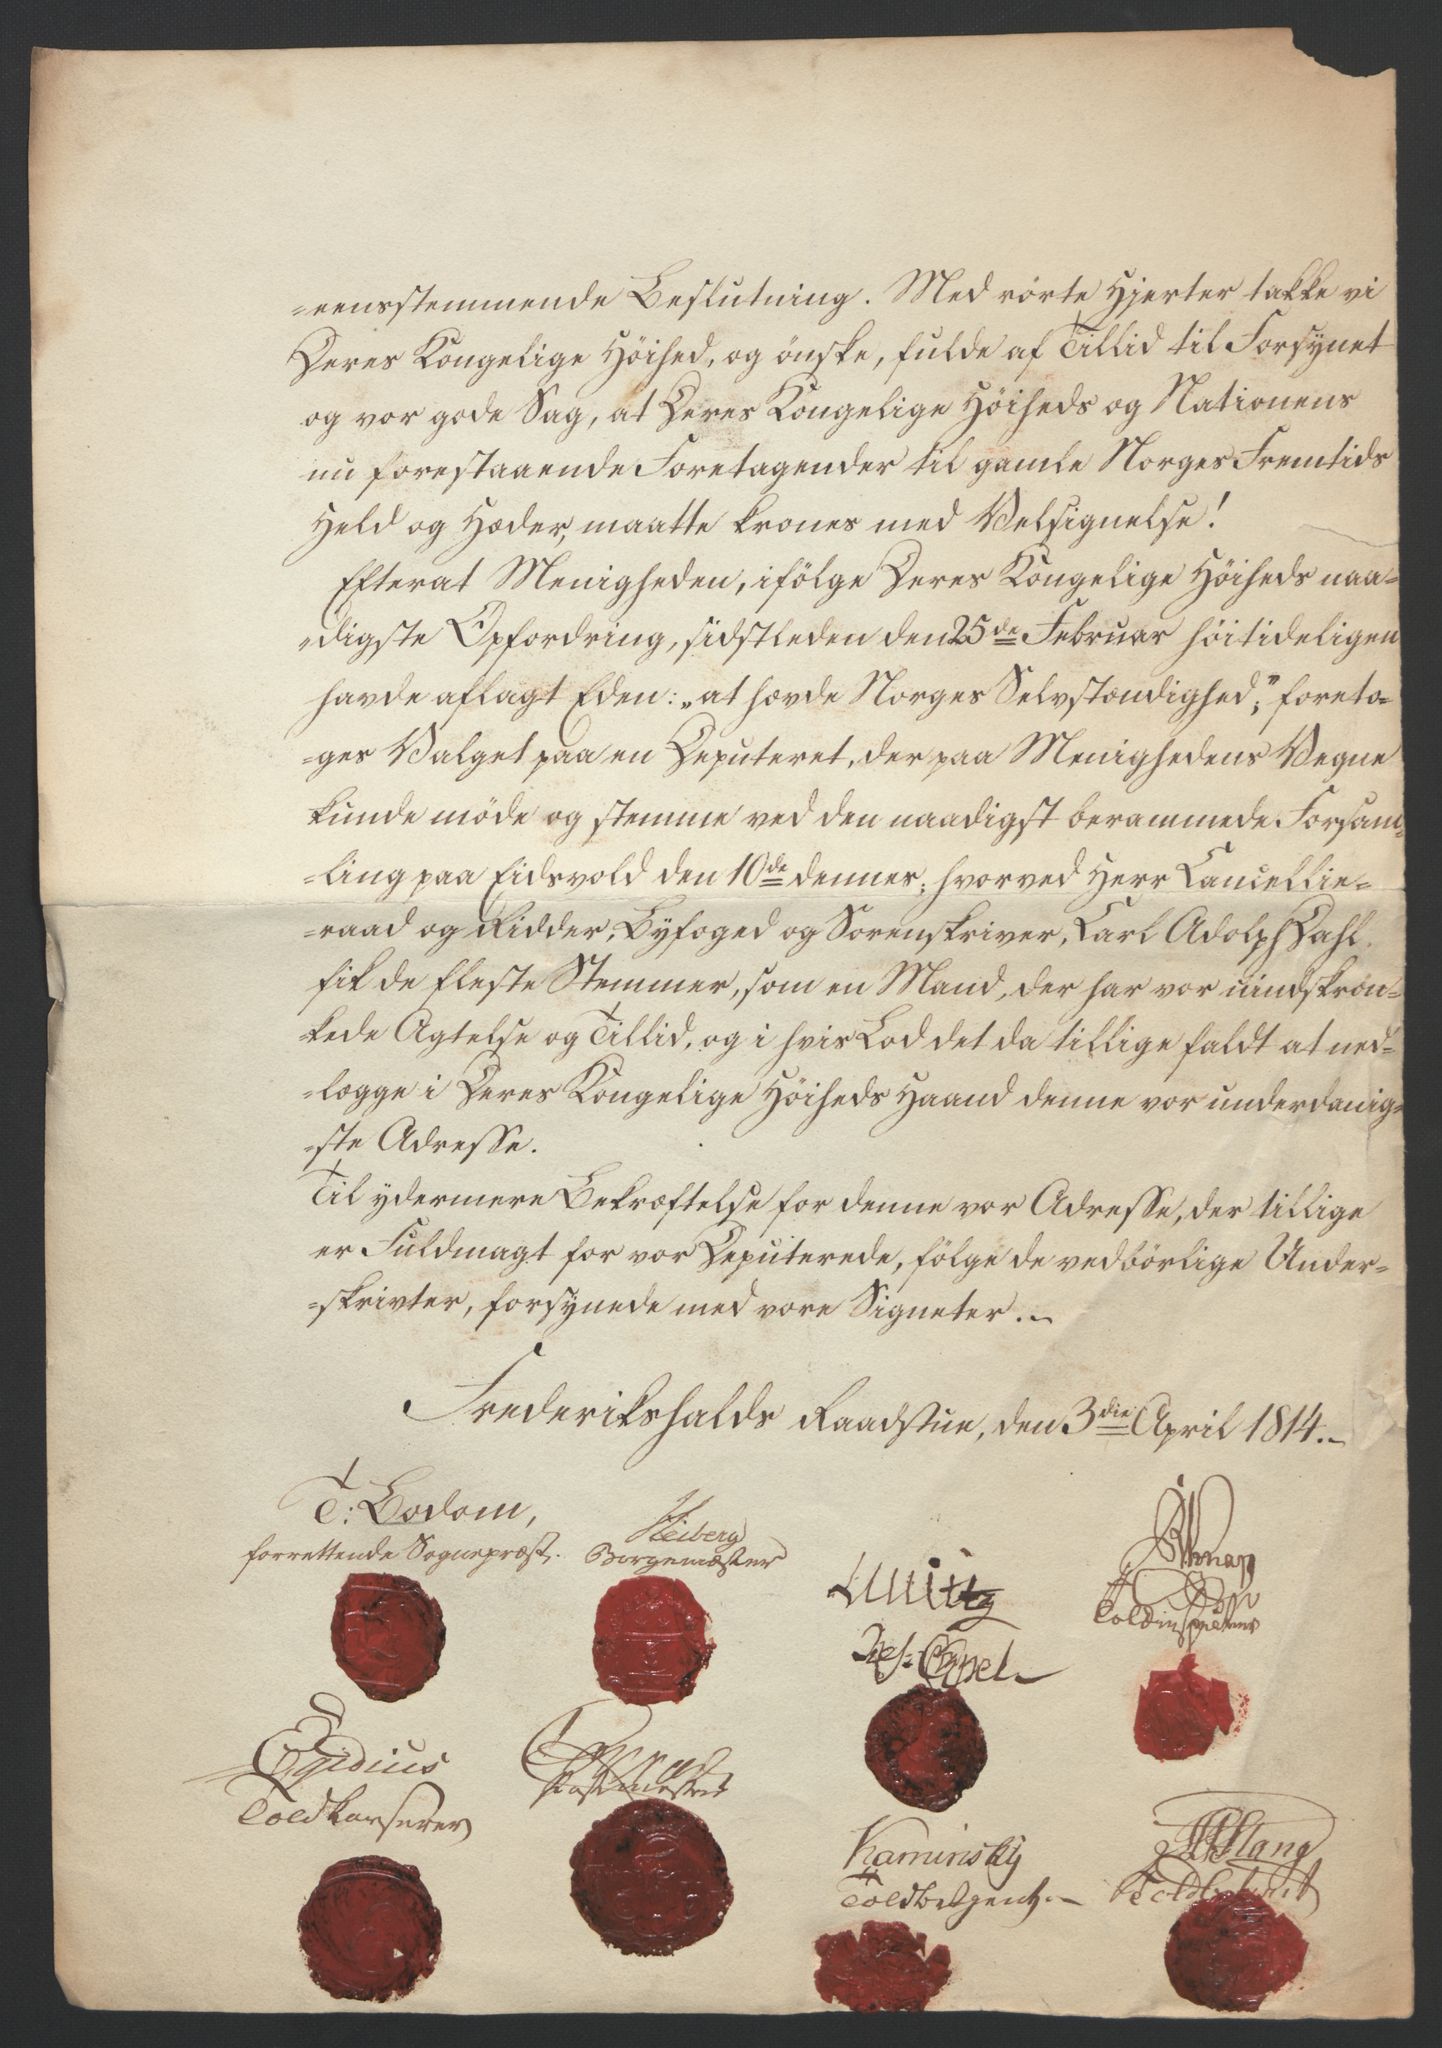 =eensstemmende Beslutning. Med rörte Hjerter takke vi
Deres Kongelige Höihed, og önske, fulde af Tillid til Forsynet
og vor gode Sag, at Deres Kongelige Höiheds og Nationens
nu forestaaende Foretagender til gamle Norges Fremtids
Held og Hæder, maatte krones med Velsignelse!
Efterat Menigheden, ifölge Deres Kongelige Höiheds naa=
=digste Opfordring, sidstleden den 25de Februar höitideligen
havde aflagt Eden: „at hævde Norges Selvstændighed;” foreto=
=ges Valget paa en Deputeret, der paa Menighedens Vegne
kunde möde og stemme ved den naadigst berammede Forsam=
=ling paa Eidsvold den 10de dennes; hvorved Herr Cancellie=
=raad og Ridder, Byfoged og Sorenskriver, Carl Adolph Dahl
fik de fleste Stemmer, som en Mand, der har vor uindskræn=
kede Agtelse og Tillid, og i hvis Lod det da tillige faldt at ned=
=lægge i Deres Kongelige Höiheds Haand denne vor underdanig=
=ste Adresse.
Til ydermere Bekræftelse for denne vor Adresse, der tillige
er Fuldmagt for vor Deputerede, fölge de vedbörlige Under=
=skrivter, forsynede med vore Signeter.
Frederikshalds Raadstue, den 3die April 1814.
T: Bodom,
forrettende Sognepræst.
Heiberg
Borgemæster
Toldinspecteur
Egidius
Toldkasserer
Postmester
Kaminsky
Toldbetjent
Stang
Toldbetjent